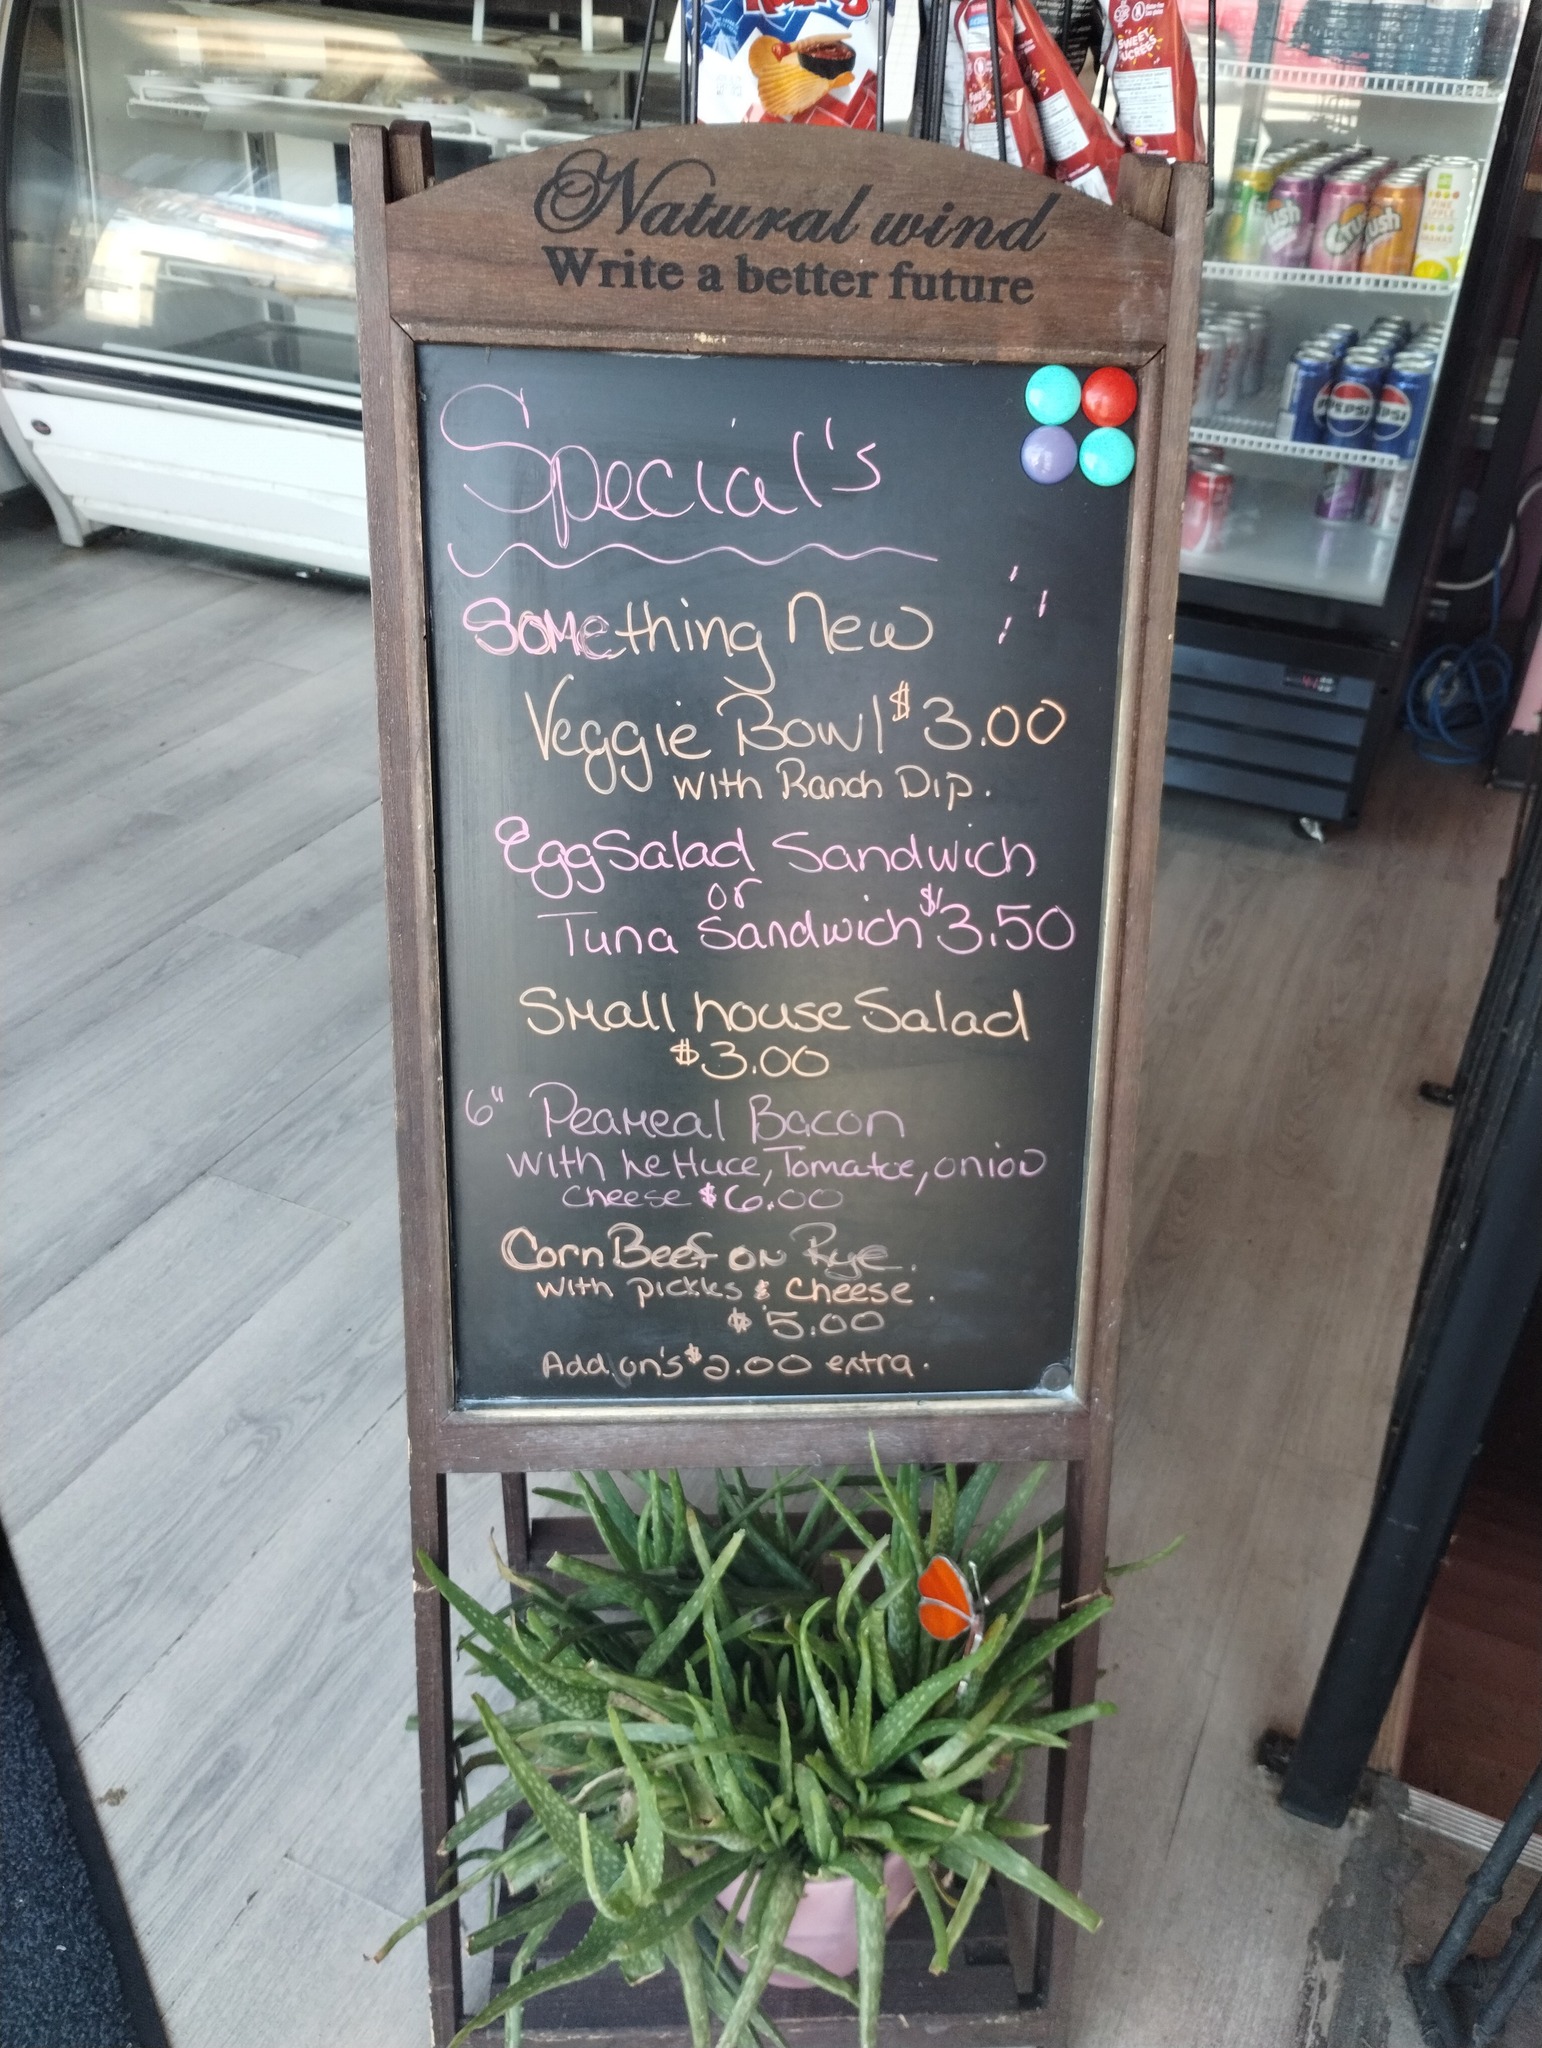 Natural wind
Write a better future
Special's
Something New
Veggie Bowl $3.00
with Ranch Dip.
Egg Salad Sandwich
or
Tuna Sandwich $3.50
Small house Salad
$3.00
6" Peameal Bacon
with Lettuce, Tomatoe, onion
cheese $6.00
Corn Beef on Rye.
with pickles & cheese.
$5.00
Add on's $2.00 extra.
SWEET
Crush
Crush
Crush
PINE
APPLE
PEPSI
PEPSI